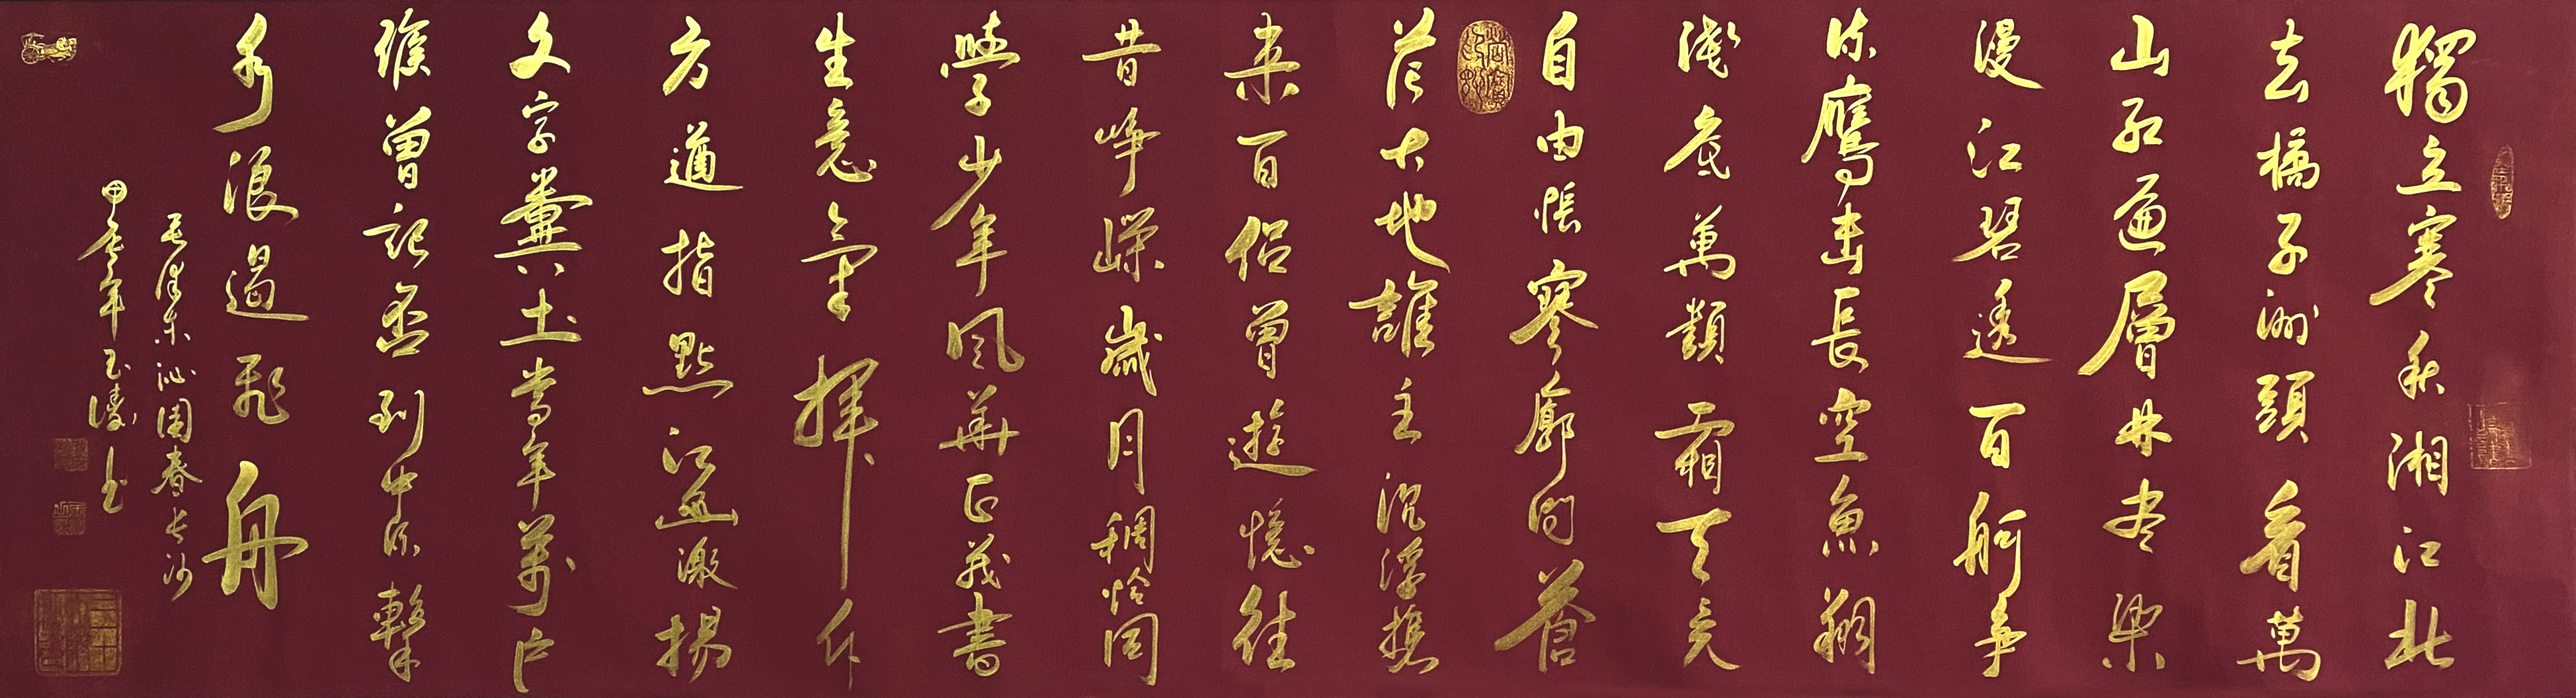 獨立寒秋湘江北
去橘子洲頭看萬
山红遍層林尽染
漫江碧透百舸争
流鷹击長空魚翔
淺底萬類霜天竞
自由悵寥廓问蒼
茫大地誰主沉浮携
来百侣曾遊憶往
昔峥嵘歲月稠恰同
學少年风華正茂書
生意氣揮斥
方遒指點江山激揚
文字糞土當年萬户
侯曾記否到中流擊
水浪遏飛舟
毛澤东沁園春长沙
甲辰年玉濤书